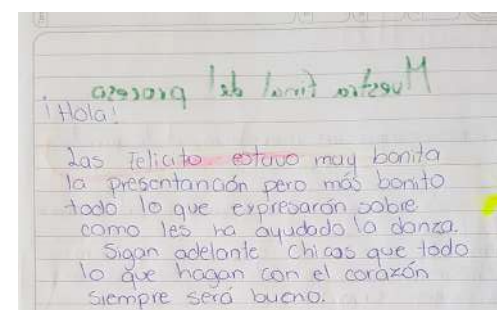 Muestra final del proceso
¡Hola!
Las Felicito estuvo muy bonita
la presentanción pero más bonito
todo lo que expresarón sobre
como les ha ayudado la danza.
Sigan adelante chicas que todo
lo que hagan con el corazón
siempre será bueno.